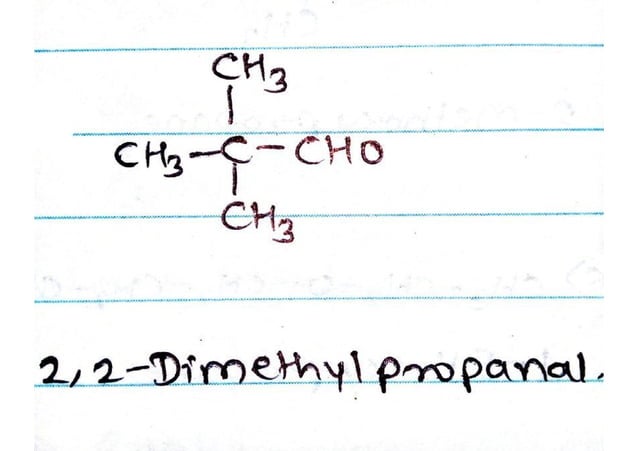 CH3
CH3-C-CHO
CH3
2,2-Dimethylpropanal.